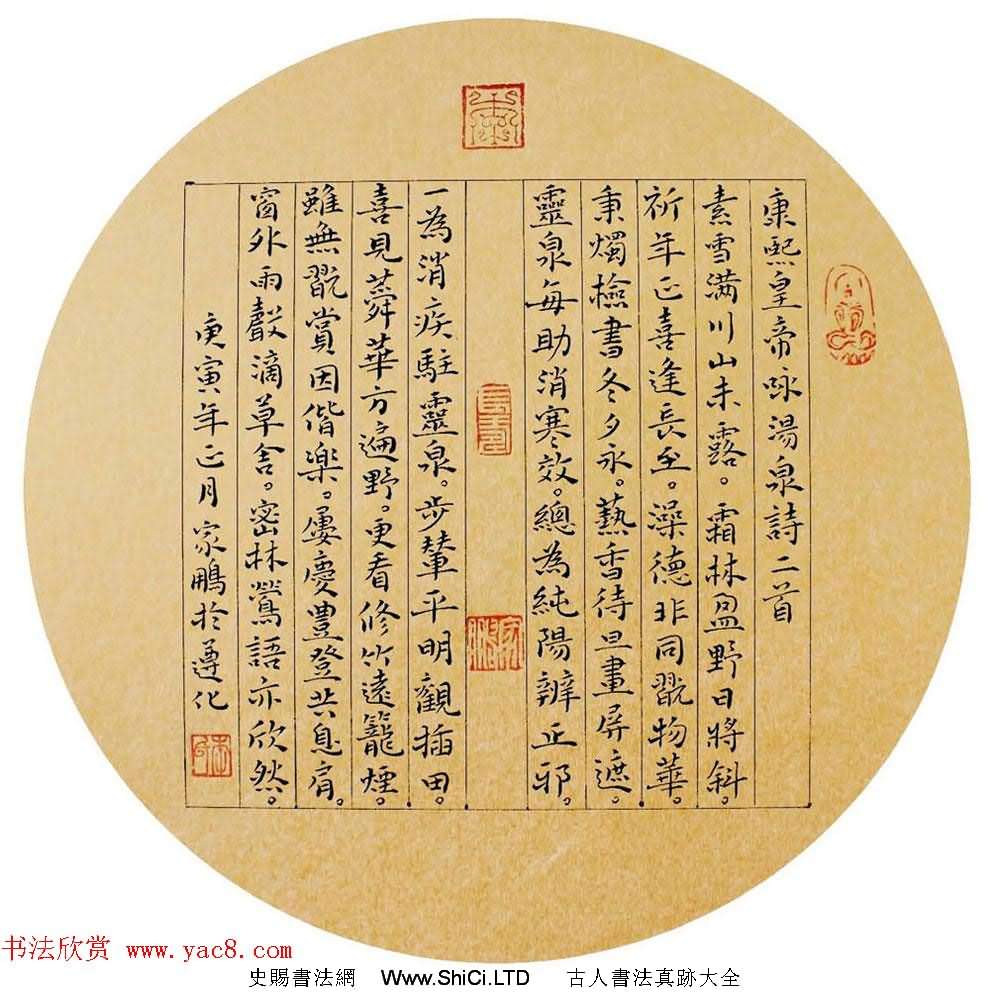 康熙皇帝咏湯泉詩二首
素雪满川山未露。霜林盈野日將斜。
祈年正喜逢長至。澡德非同翫物華。
秉燭檢書冬夕永。爇香待旦畫屏遮。
靈泉每助消寒效。總為純陽辨正邪。
一為消疾駐靈泉。步輦平明觀插田。
喜見蕣華方遍野。更看修竹遠籠煙。
雖無翫賞因偕樂。屢慶豊登共息肩。
窗外雨聲滴草舍。密林鶯語亦欣然。
庚寅年正月家鵬於遵化
书法欣赏 www.yac8.com
史賜書法網 Www.ShiCi.LTD 古人書法真跡大全